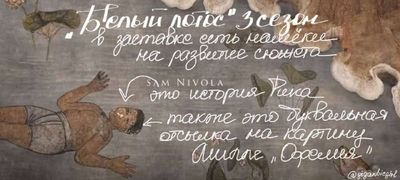 „Белый лотос" 3 сезон
в заставке есть намёки
на развитие сюжета
SAM NIVOLA
это история Рика
также это буквальная
отсылка на картину
Милле „Офелия"